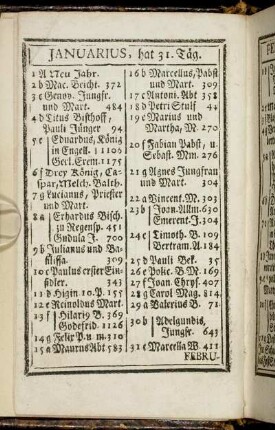 JANUARIUS, hat 31. Tåg.
1 A Neu Jahr.
2 b Mac. Beicht. 372
3 c Genov. Jungfr.
und Mart. 484
4 d Titus Bischoff,
Pauli Jünger 94
5 e Eduardus, König
in Engell. 1106
Gert. Erem. 1175
6 f Drey König, Ca-
spar, Melch. Balth.
7 g Lucianus, Priester
und Mart.
8 a Erhardus Bisch.
zu Regensp. 451
Gudula J. 700
9 b Julianus und Ba-
silissa. 309
10 c Paulus erster Ein-
sidler. 343
11 d Higin 10. P. 155
12 e Reinoldus Mart.
13 f Hilariy B. 369
Godefrid. 1126
14 g Felix P. u. m. 310
15 a Maurus Abt 583
16 b Marcellus, Pabst
und Mart. 309
17 c Antoni. Abt 358
18 d Petri Stulf 44
19 e Marius und
Martha, M. 270
20 f Fabian Pabst, u
Sebast. Mm. 276
21 g Agnes Jungfrau
und Mart. 304
22 a Vincent. M. 303
23 b Joan. Allm. 630
Emerent. J. 304
24 c Timoth. B. 109
Bertram. A. 184
25 d Pauli Bek. 35
26 e Polic. B M. 169
27 f Joan Chrys. 407
28 g Carol Mag. 814
29 a Valerius B. 71
30 b Adelgundis,
Jungfr. 643
31 c Marcella W. 411
FEBRU-